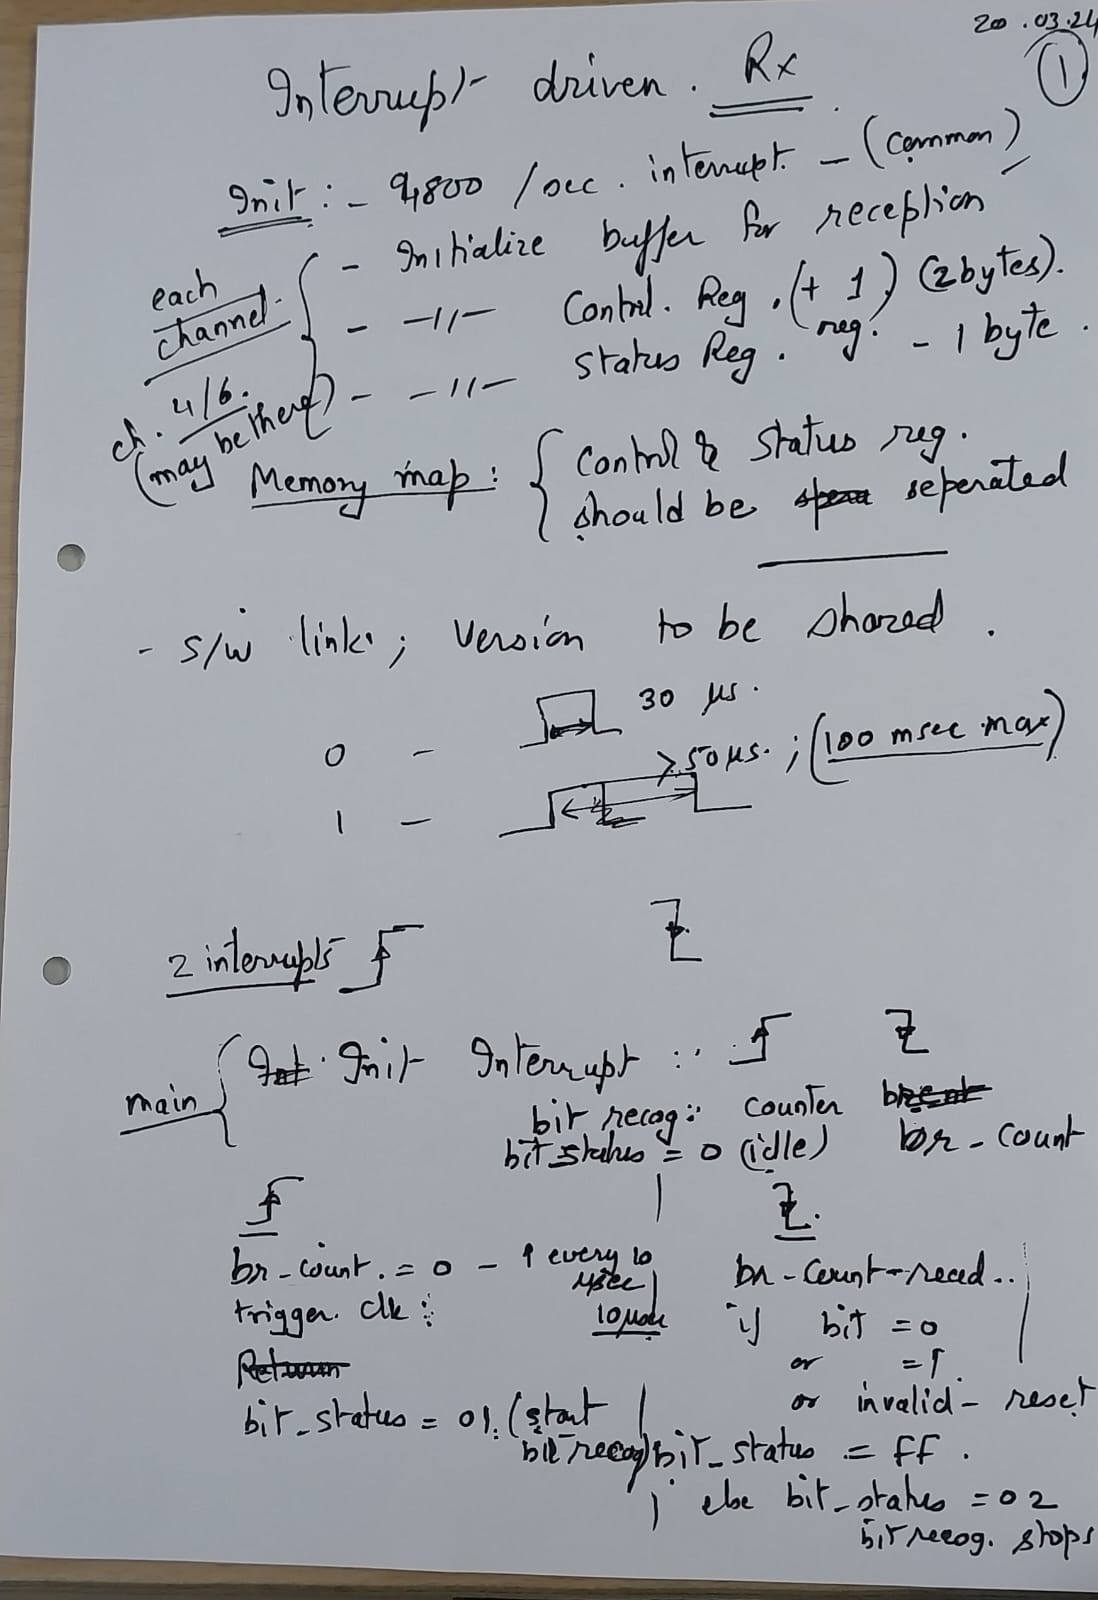 20.03.24
1
Interrupt driven. Rx
Init :- 9,800 /sec. interrupt. - (common)
each channel. ch. 4/6. (may be there)
- Initialize buffer for reception
- -11- Control. Reg. (+ 1 reg.) (2 bytes).
- -11- Status Reg. - 1 byte.
Memory map: { Control & Status reg.
should be seperated
- s/w link; Version to be shared.
0 - 30 µs.
1 - >50µs. ; (100 msec max)
2 interrupts
main { Init Interrupt :
bit recog: counter br-count
bit status = 0 (idle)
br-count. = 0 - 1 every 10 µsec
10 µsec
trigger. clk :
Return
bit_status = 01. (start bit recog)
br-count-read..
if bit = 0
or = 1
or invalid - reset
bit_status = FF.
else bit_status = 02
bit recog. stops